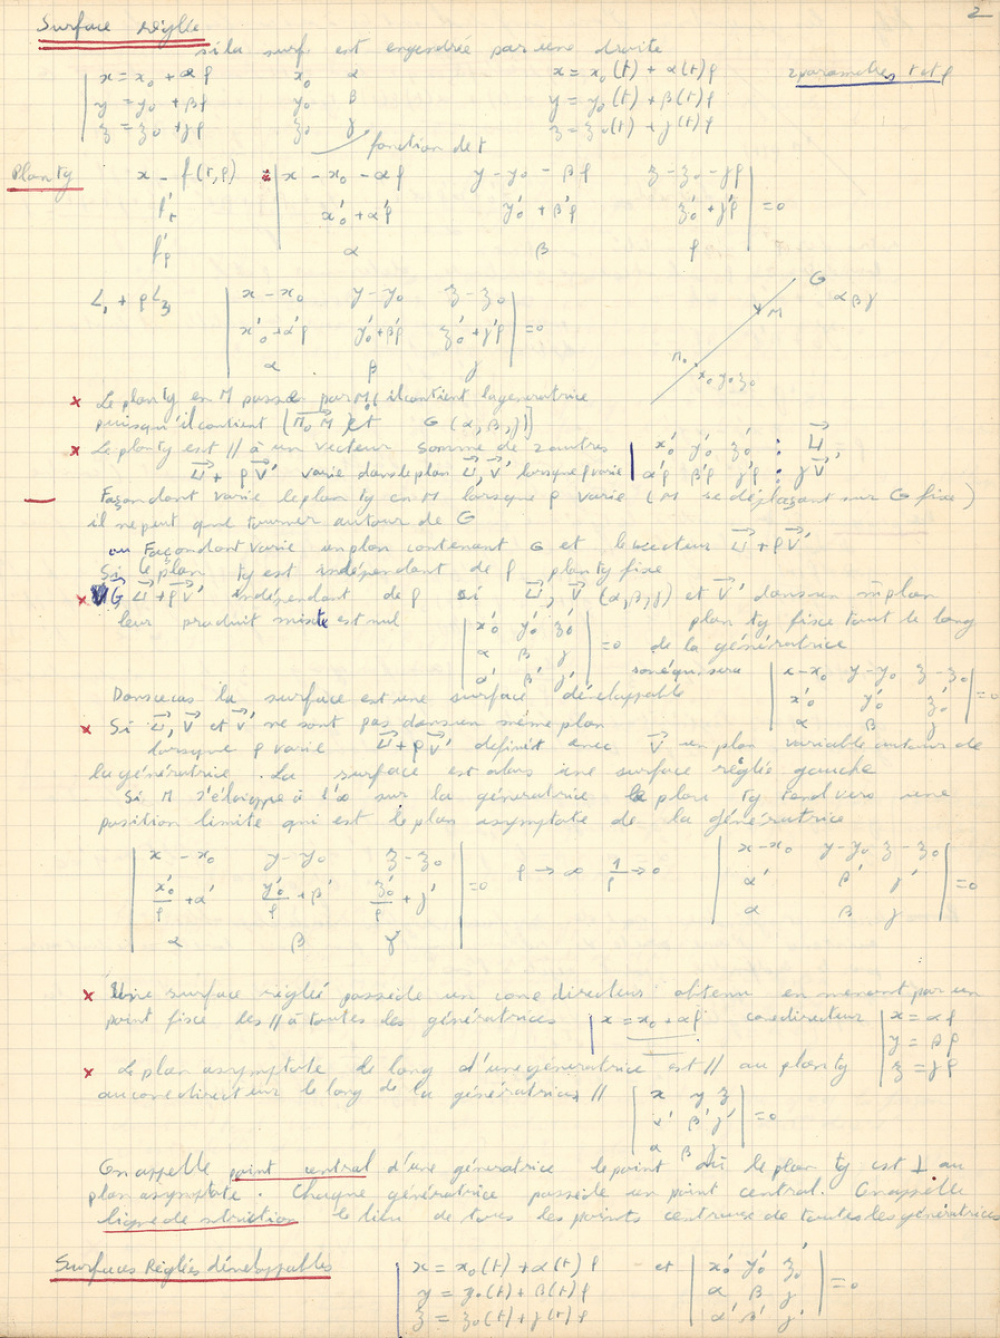 2
Surface réglée
si la surf est engendrée par une droite
x = x₀ + αρ    x₀    α    x = x₀(t) + α(t)ρ    2 parametres t et ρ
y = y₀ + βρ    y₀    β    y = y₀(t) + β(t)ρ
z = z₀ + γρ    z₀    γ    z = z₀(t) + γ(t)ρ
fonction de t
Plan tg    x - f(t,ρ) = | x - x₀ - αρ    y - y₀ - βρ    z - z₀ - γρ |
f'ₜ    x'₀ + α'ρ    y'₀ + β'ρ    z'₀ + γ'ρ    = 0
f'ρ    α    β    ρ
G
α β γ
L₁ + ρL₃    | x - x₀    y - y₀    z - z₀ |
x'₀ + α'ρ    y'₀ + β'ρ    z'₀ + γ'ρ    = 0
α    β    γ
M
M₀
x₀ y₀ z₀
x Le plan tg en M passe par M₀ il contient la generatrice
puisqu'il contient [M₀M et G (α, β, γ)]
x Le plan tg est // à un vecteur somme de 2 autres | x'₀ y'₀ z'₀ : U
U + ρV' varie dans le plan U, V' lorsque ρ varie | α'ρ β'ρ γ'ρ : ρV'
Façon dont varie le plan tg en M lorsque ρ varie (M se déplaçant sur G fixe)
il ne peut que tourner autour de G
ou Façon dont varie un plan contenant G et le vecteur U + ρV'
Si le plan tg est indépendant de ρ plan tg fixe
x VG U + ρV' indépendant de ρ si U, V (α, β, γ) et V' dans un m̂ plan
leur produit mixte est nul    | x'₀ y'₀ z'₀ |    plan tg fixe tout le long
α β γ    = 0    de la génératrice
α' β' γ'    son équ. sera    | x - x₀    y - y₀    z - z₀ |
Dans ce cas la surface est une surface développable    x'₀    y'₀    z'₀    = 0
x Si U, V et V' ne sont pas dans un même plan    α    β    γ
lorsque ρ varie U + ρV' définit avec V un plan variable autour de
la génératrice. La surface est alors une surface réglée gauche
Si M s'éloigne à l'∞ sur la géneratrice le plan tg tend vers une
position limite qui est le plan asymptote de la génératrice
| x - x₀    y - y₀    z - z₀ |    | x - x₀    y - y₀    z - z₀ |
x'₀/ρ + α'    y'₀/ρ + β'    z'₀/ρ + γ'    = 0    ρ → ∞    1/ρ → 0    α'    β'    γ'    = 0
α    β    γ    α    β    γ
x Une surface réglée possède un cone directeur obtenu en menant par un
point fixe les // à toutes les génératrices | x = x₀ + αρ    cone directeur | x = αρ
y = βρ
x Le plan asymptote le long d'une generatrice est // au plan tg    z = γρ
au cone directeur le long de la génératrices //    | x y z |
α' β' γ'    = 0
α β γ
On appelle point central d'une géneratrice le point où le plan tg est ⊥ au
plan asymptote. Chaque génératrice possède un point central. On appelle
ligne de striction le lieu de tous les points centraux de toutes les génératrices
Surfaces Réglées développables    | x = x₀(t) + α(t)ρ    et    | x'₀ y'₀ z'₀ |
y = y₀(t) + β(t)ρ    α β γ    = 0
z = z₀(t) + γ(t)ρ    α' β' γ'